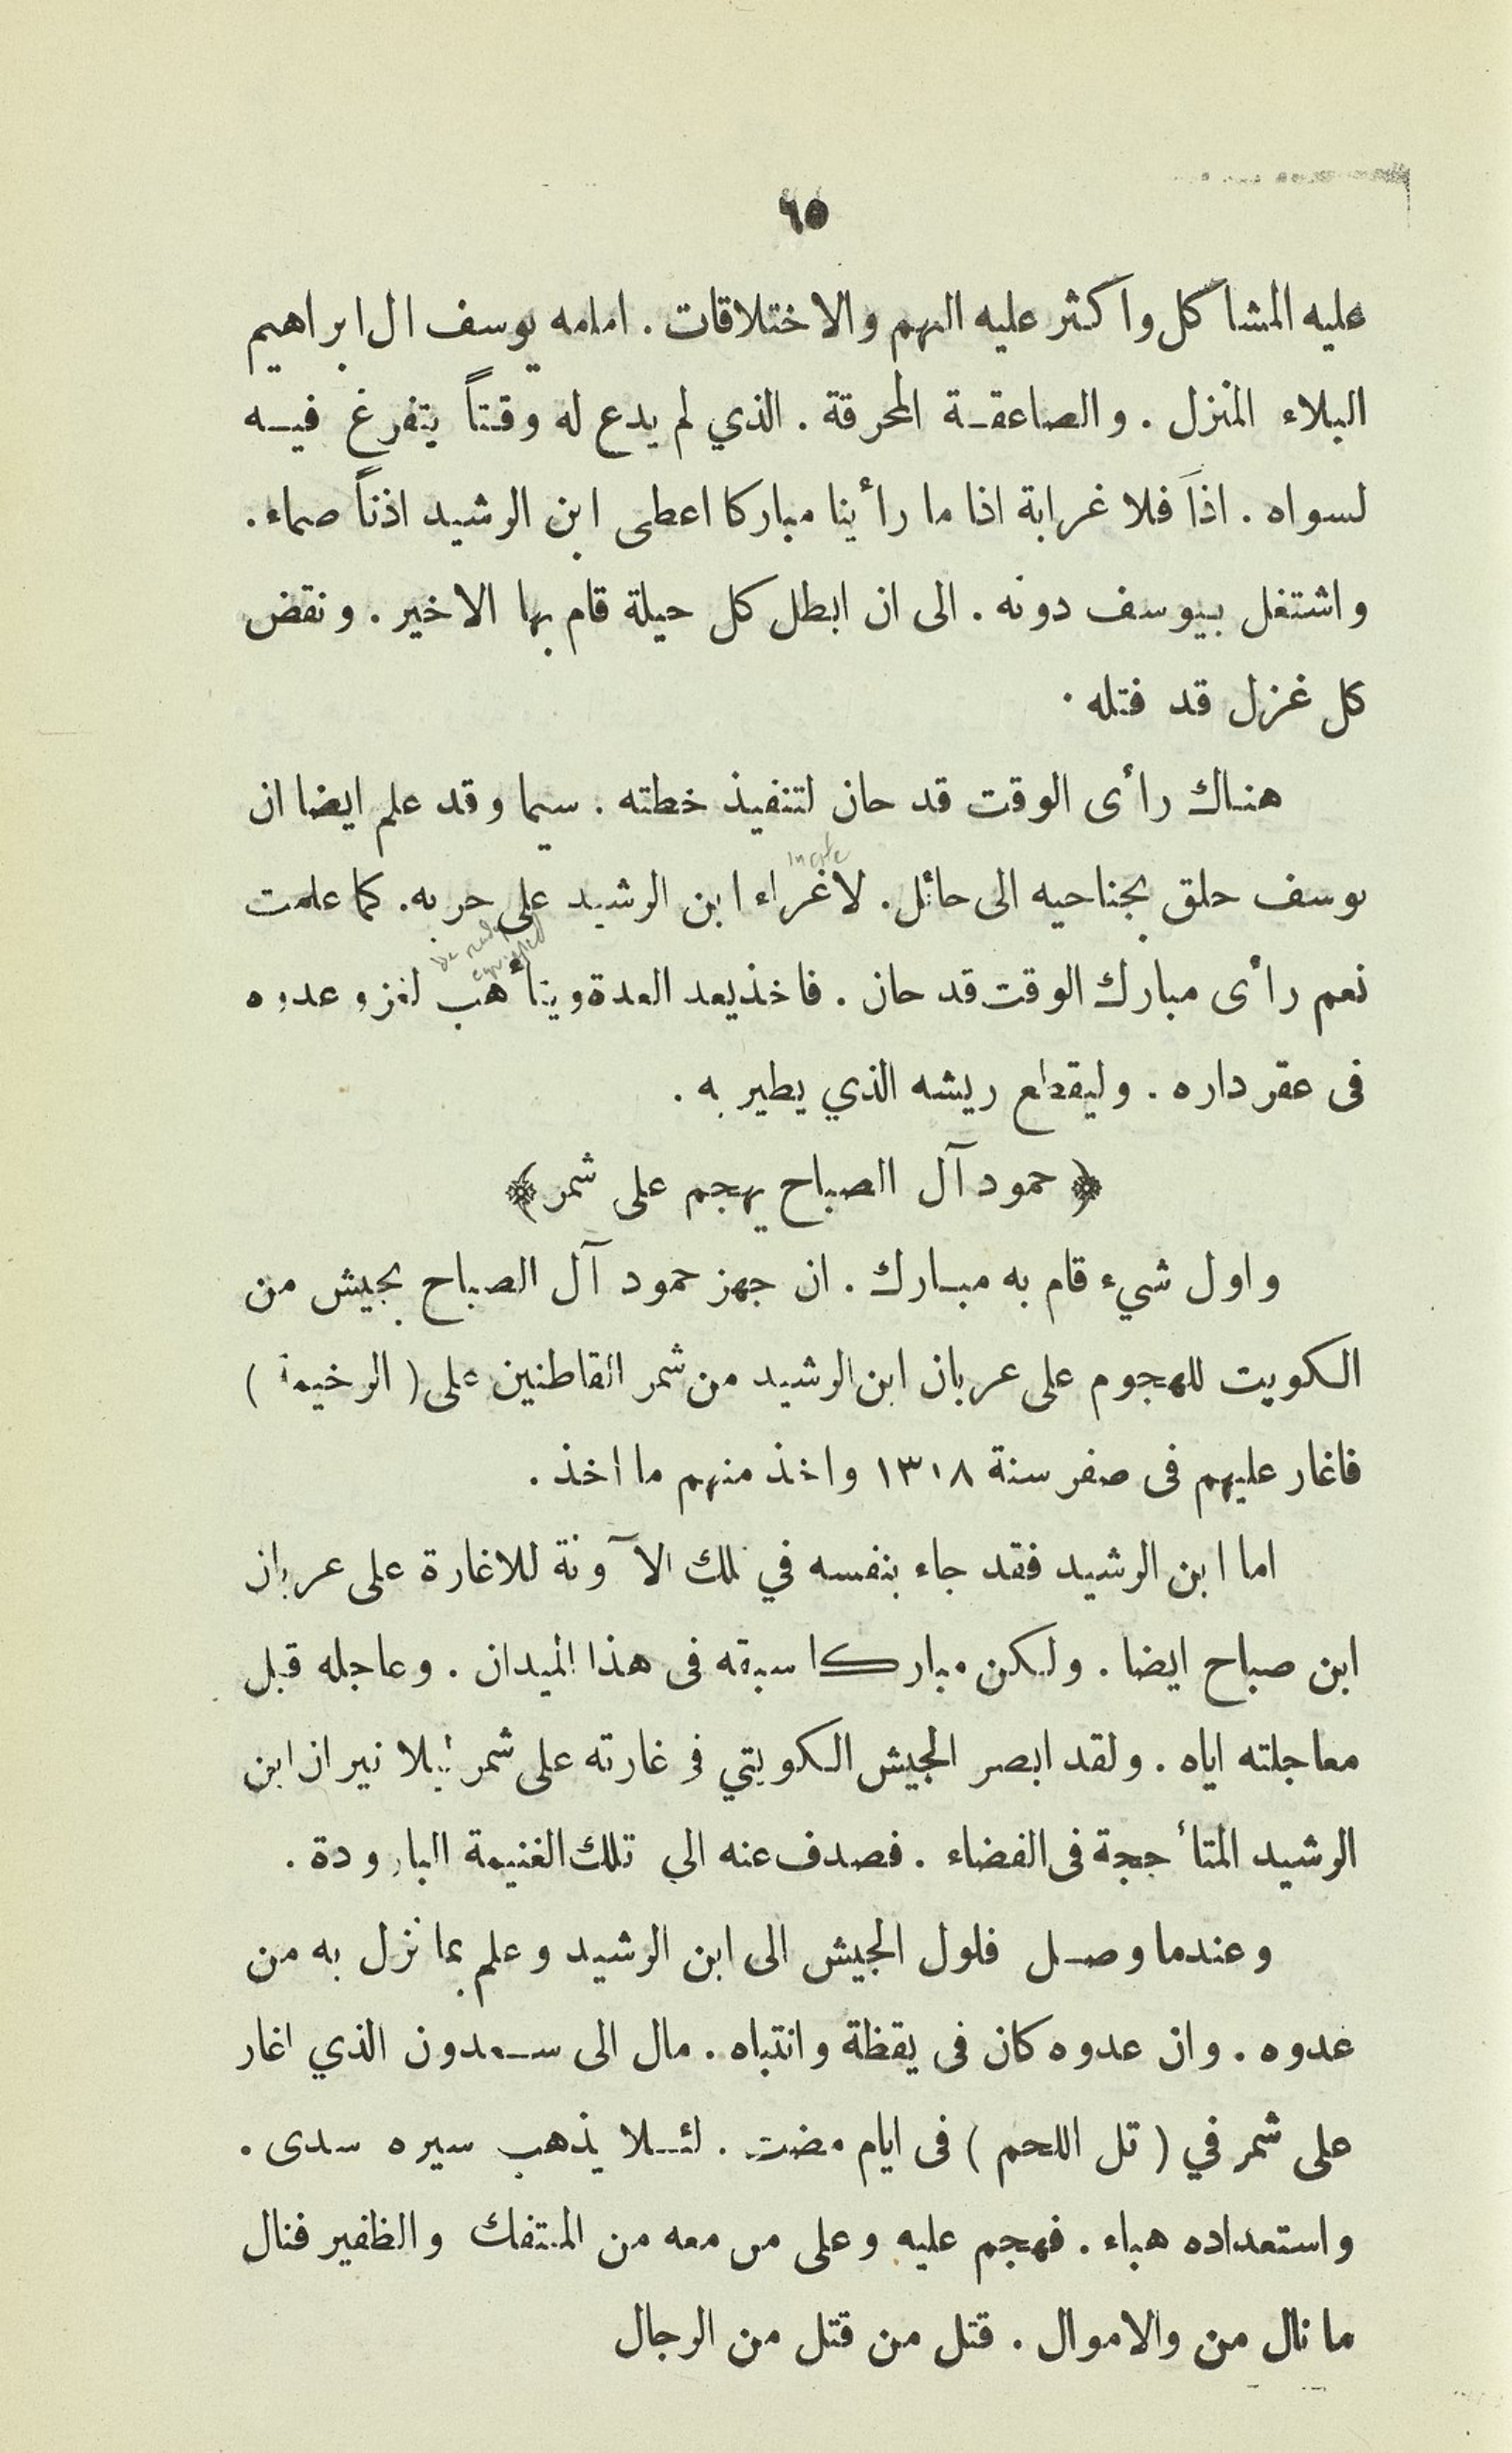 ٦٥
عليه المشاكل واكثر عليه التهم والاختلاقات . امامه يوسف ال ابراهيم
البلاء المنزل . والصاعقة المحرقة . الذي لم يدع له وقتاً يتفرغ فيه
لسواه . اذاً فلا غرابة اذا ما رأينا مباركا اعطى ابن الرشيد اذناً صماء .
واشتغل بيوسف دونه . الى ان ابطل كل حيلة قام بها الاخير . ونقض
كل غزل قد فتله .
هناك رأى الوقت قد حان لتنفيذ خطته . سيما وقد علم ايضا ان
incite
يوسف حلق بجناحيه الى حائل . لاغراء ابن الرشيد على حربه . كما علمت
be ready
equipped
نعم رأى مبارك الوقت قد حان . فاخذ يعد العدة ويتأهب لغزو عدوه
فى عقر داره . وليقطع ريشه الذي يطير به .
﴿ حمود آل الصباح يهجم على شمر ﴾
واول شيء قام به مبارك . ان جهز حمود آل الصباح بجيش من
الكويت للهجوم على عربان ابن الرشيد من شمر القاطنين على ( الرخيمة )
فاغار عليهم فى صفر سنة ١٣١٨ واخذ منهم ما اخذ .
اما ابن الرشيد فقد جاء بنفسه في تلك الآونة للاغارة على عربان
ابن صباح ايضا . ولكن مباركا سبقه فى هذا الميدان . وعاجله قبل
معاجلته اياه . ولقد ابصر الجيش الكويتي في غارته على شمر ليلا نيران ابن
الرشيد المتأججة فى الفضاء . فصدف عنه الى تلك الغنيمة الباروده .
وعندما وصل فلول الجيش الى ابن الرشيد وعلم بما نزل به من
عدوه . وان عدوه كان فى يقظة وانتباه . مال الى سعدون الذي اغار
على شمر في ( تل اللحم ) فى ايام مضت . لئلا يذهب سيره سدى .
واستعداده هباء . فهجم عليه وعلى من معه من المنتفك والظفير فنال
ما نال من والاموال . قتل من قتل من الرجال